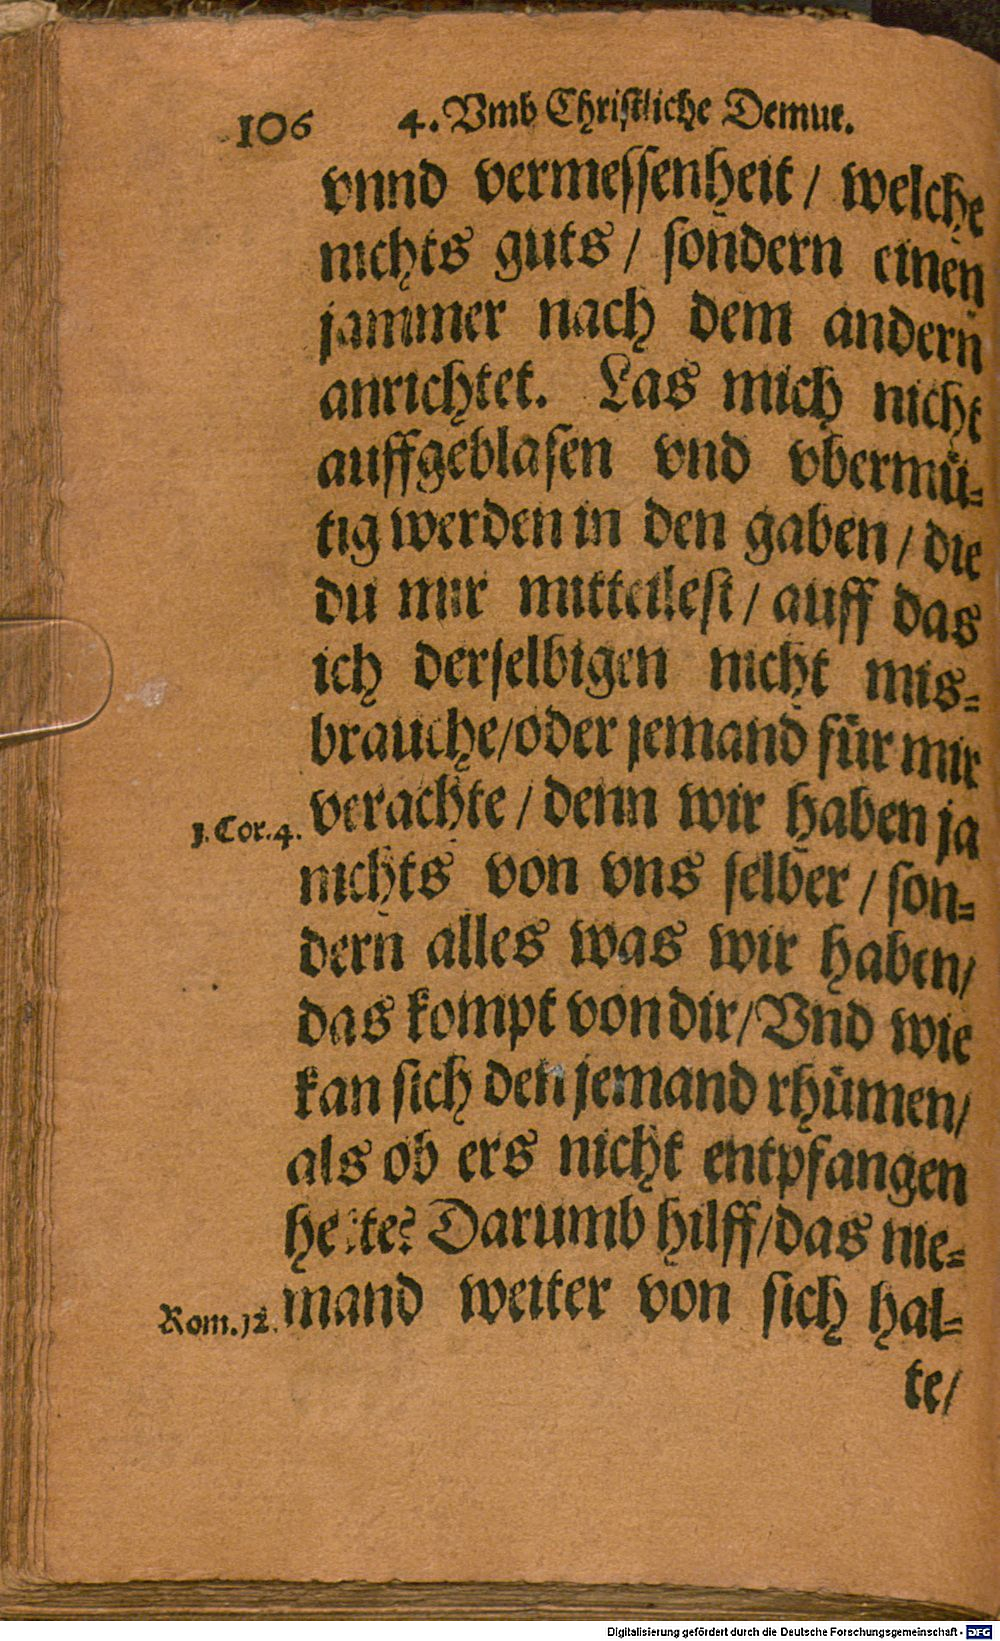 106 4. Vmb Christliche Demut.
vnnd vermessenheit / welche
nichts guts / sondern einen
jammer nach dem andern
anrichtet. Las mich nicht
auffgeblasen vnd vbermü-
tig werden in den gaben / die
du mir mitteilest / auff das
ich derselbigen nicht mis-
brauche/oder jemand für mir
1. Cor. 4. verachte / denn wir haben ja
nichts von vns selber / son-
dern alles was wir haben/
das kompt von dir/Vnd wie
kan sich den jemand rhümen/
als ob ers nicht entpfangen
hette? Darumb hilff/das nie-
Rom. 12. mand weiter von sich hal-
te/
Digitalisierung gefördert durch die Deutsche Forschungsgemeinschaft - DFG